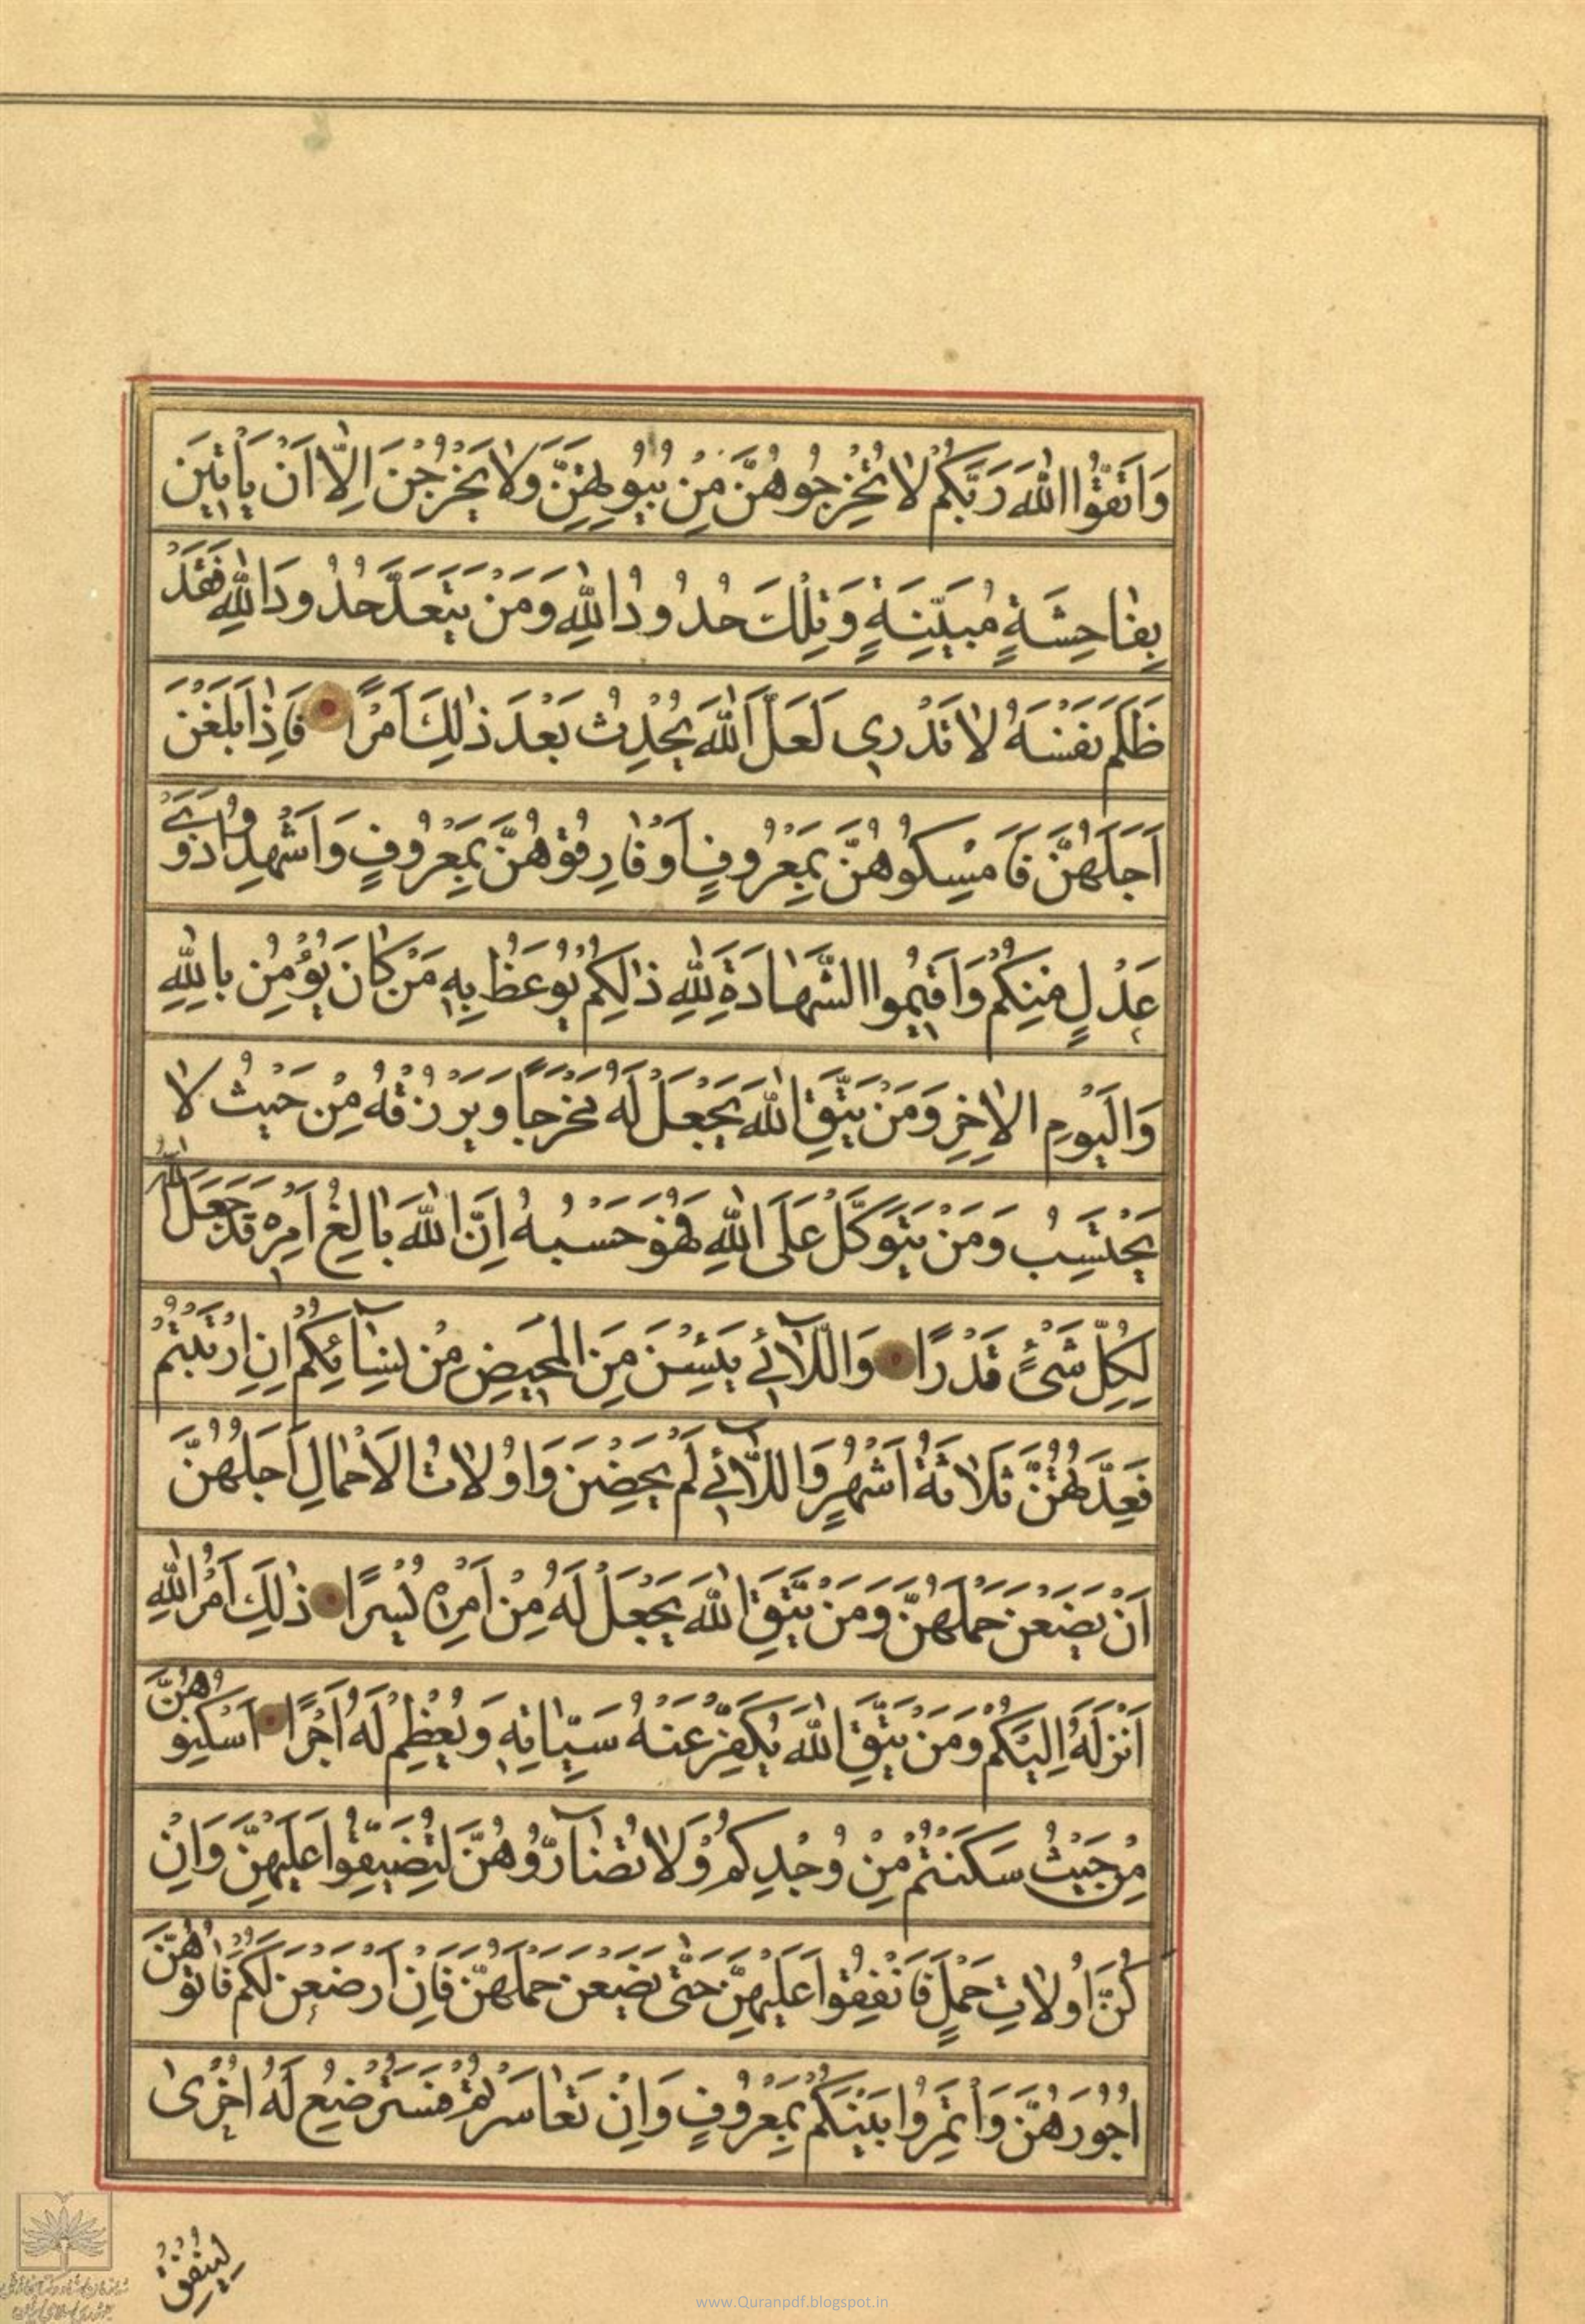 وَاتَّقُوا اللهَ رَبَّكُمْ لَا تُخْرِجُوهُنَّ مِنْ بُيُوتِهِنَّ وَلَا يَخْرُجْنَ اِلَّا اَنْ يَأْتِينَ
بِفَاحِشَةٍ مُبَيِّنَةٍ وَتِلْكَ حُدُودُ اللهِ وَمَنْ يَتَعَدَّ حُدُودَ اللهِ فَقَدْ
ظَلَمَ نَفْسَهُ لَا تَدْرِي لَعَلَّ اللهَ يُحْدِثُ بَعْدَ ذٰلِكَ اَمْرًا فَاِذَا بَلَغْنَ
اَجَلَهُنَّ فَاَمْسِكُوهُنَّ بِمَعْرُوفٍ اَوْ فَارِقُوهُنَّ بِمَعْرُوفٍ وَاَشْهِدُوا ذَوَيْ
عَدْلٍ مِنْكُمْ وَاَقِيمُوا الشَّهَادَةَ لِلّٰهِ ذٰلِكُمْ يُوعَظُ بِهِ مَنْ كَانَ يُؤْمِنُ بِاللهِ
وَالْيَوْمِ الْاٰخِرِ وَمَنْ يَتَّقِ اللهَ يَجْعَلْ لَهُ مَخْرَجًا وَيَرْزُقْهُ مِنْ حَيْثُ لَا
يَحْتَسِبُ وَمَنْ يَتَوَكَّلْ عَلَى اللهِ فَهُوَ حَسْبُهُ اِنَّ اللهَ بَالِغُ اَمْرِهِ قَدْ جَعَلَ اللهُ
لِكُلِّ شَيْءٍ قَدْرًا وَاللَّآئِي يَئِسْنَ مِنَ الْمَحِيضِ مِنْ نِسَآئِكُمْ اِنِ ارْتَبْتُمْ
فَعِدَّتُهُنَّ ثَلَاثَةُ اَشْهُرٍ وَاللَّآئِي لَمْ يَحِضْنَ وَاُولَاتُ الْاَحْمَالِ اَجَلُهُنَّ
اَنْ يَضَعْنَ حَمْلَهُنَّ وَمَنْ يَتَّقِ اللهَ يَجْعَلْ لَهُ مِنْ اَمْرِهِ يُسْرًا ذٰلِكَ اَمْرُ اللهِ
اَنْزَلَهُ اِلَيْكُمْ وَمَنْ يَتَّقِ اللهَ يُكَفِّرْ عَنْهُ سَيِّئَاتِهِ وَيُعْظِمْ لَهُ اَجْرًا اَسْكِنُوهُنَّ
مِنْ حَيْثُ سَكَنْتُمْ مِنْ وُجْدِكُمْ وَلَا تُضَآرُّوهُنَّ لِتُضَيِّقُوا عَلَيْهِنَّ وَاِنْ
كُنَّ اُولَاتِ حَمْلٍ فَاَنْفِقُوا عَلَيْهِنَّ حَتّٰى يَضَعْنَ حَمْلَهُنَّ فَاِنْ اَرْضَعْنَ لَكُمْ فَاٰتُوهُنَّ
اُجُورَهُنَّ وَاْتَمِرُوا بَيْنَكُمْ بِمَعْرُوفٍ وَاِنْ تَعَاسَرْتُمْ فَسَتُرْضِعُ لَهُ اُخْرٰى
لِيُنْفِقْ
www.Quranpdf.blogspot.in